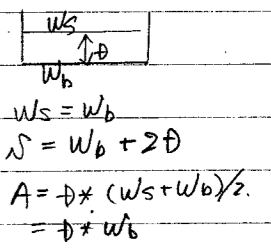 Ws
D
Wb
Ws = Wb
S = Wb + 2D
A = D * (Ws + Wb)/2.
= D * Wb